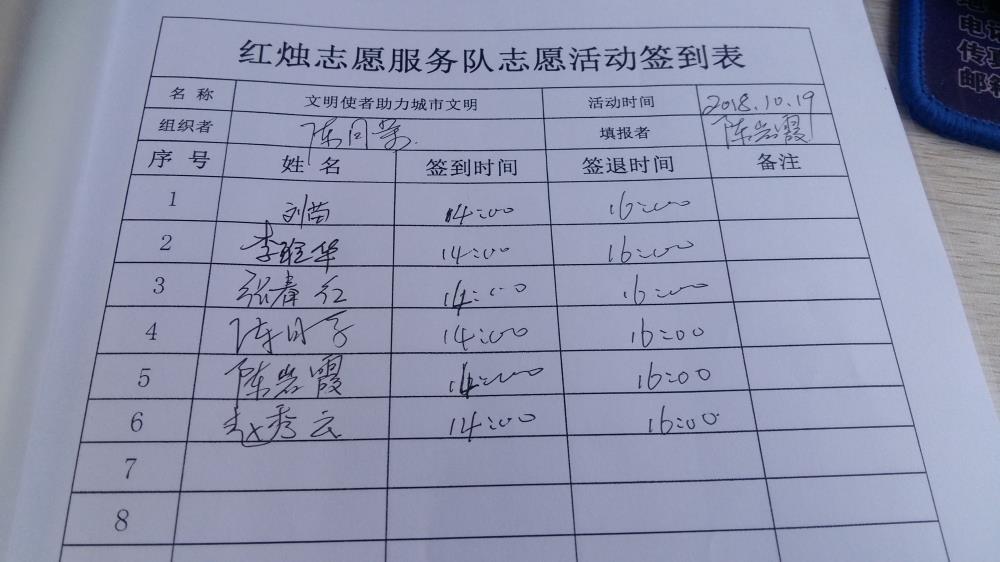 红烛志愿服务队志愿活动签到表
名 称 文明使者助力城市文明 活动时间 2018.10.19
组织者 填报者 陈岩霞
序 号 姓 名 签到时间 签退时间 备注
1 刘苗 14:00 16:00
2 李 华 14:00 16:00
3 张春红 14:00 16:00
4 14:00 16:00
5 陈岩霞 14:00 16:00
6 赵秀云 14:00 16:00
7
8
电话
传真
邮箱